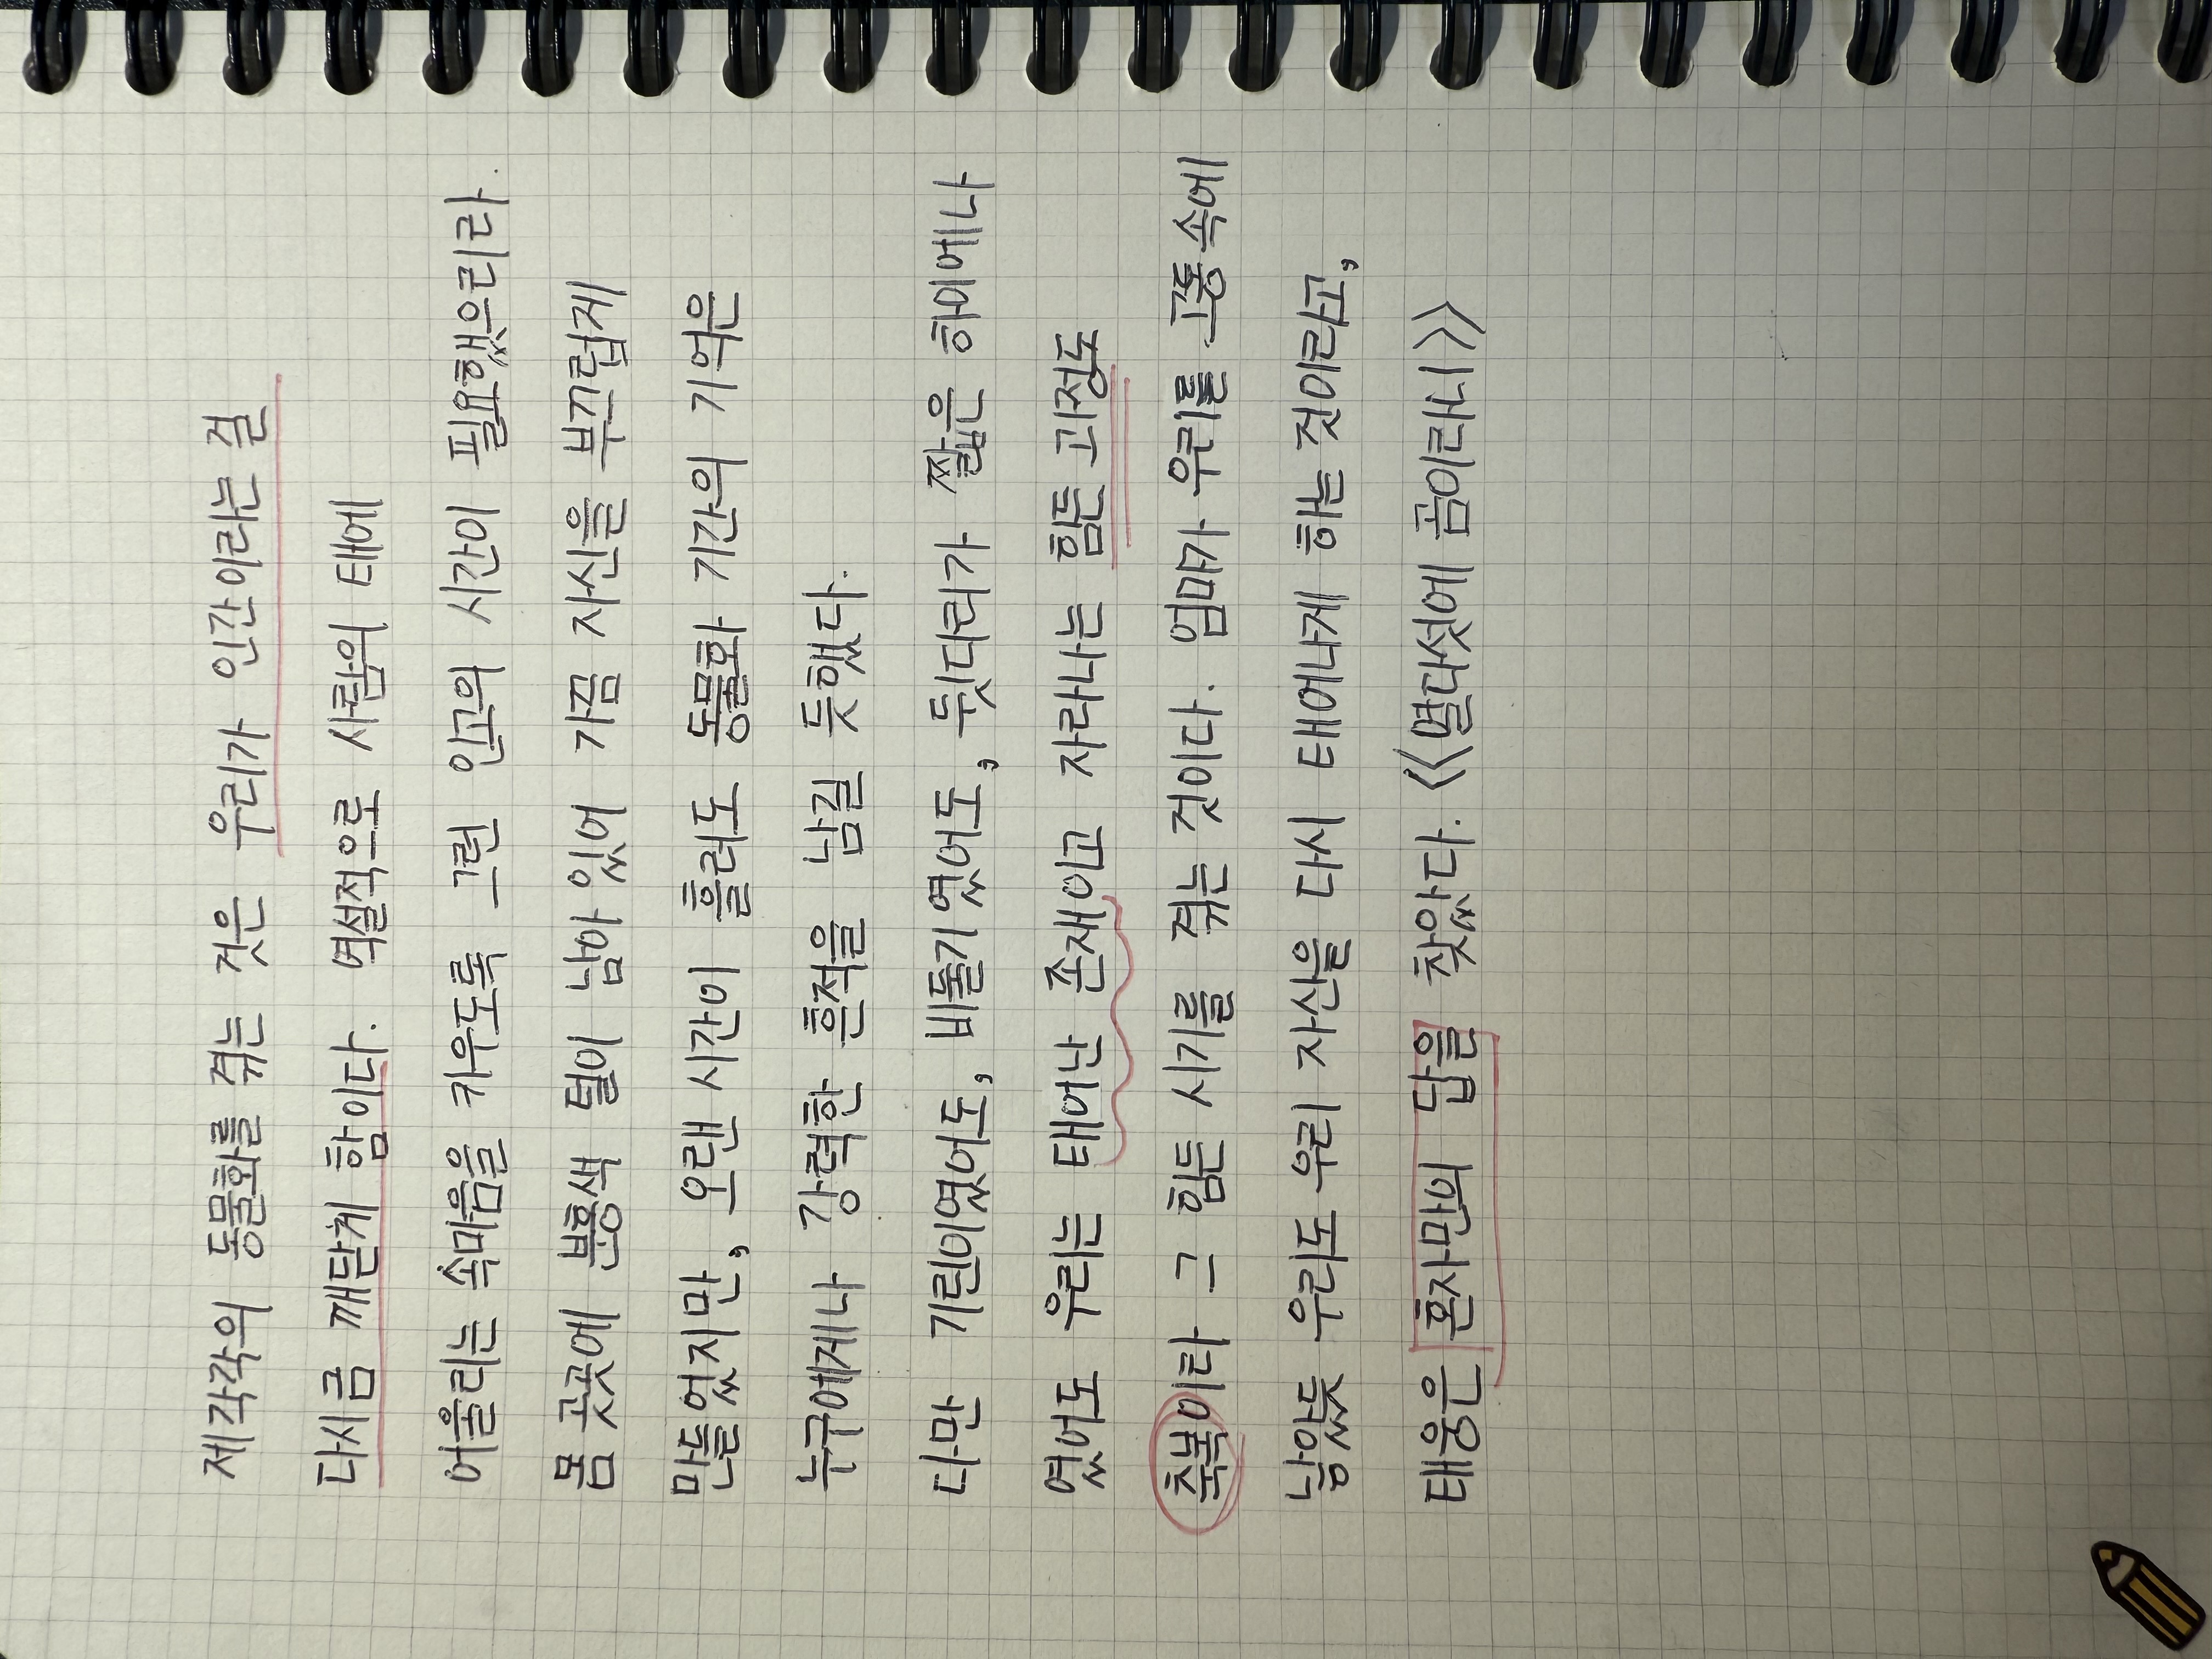 제각각의 동물화를 겪는 것은 우리가 인간이라는 걸
다시금 깨닫게 함이다. 역설적으로 사람의 태에
어울리는 속마음을 키우도록 그런 인고의 시간이 필요했으리라.
몸 곳곳에 분홍색 털이 남아 있어 가끔 자신을 부끄럽게
만들었지만, 오랜 시간이 흘러도 동물화 기간의 기억은
누구에게나 강력한 흔적을 남길 듯했다.
다만 기린이였어도, 비둘기였어도, 뒷다리가 짧은 하이에나
였어도 우리는 태어난 존재이고 자라나는 힘든 과정도
축복이라 그 힘든 시기를 겪는 것이다. 엄마가 우리를 고통 속에
낳았듯 우리도 우리 자신을 다시 태어나게 하는 것이라고,
태웅은 혼자만의 답을 찾았다. 《열다섯에 곰이라니》